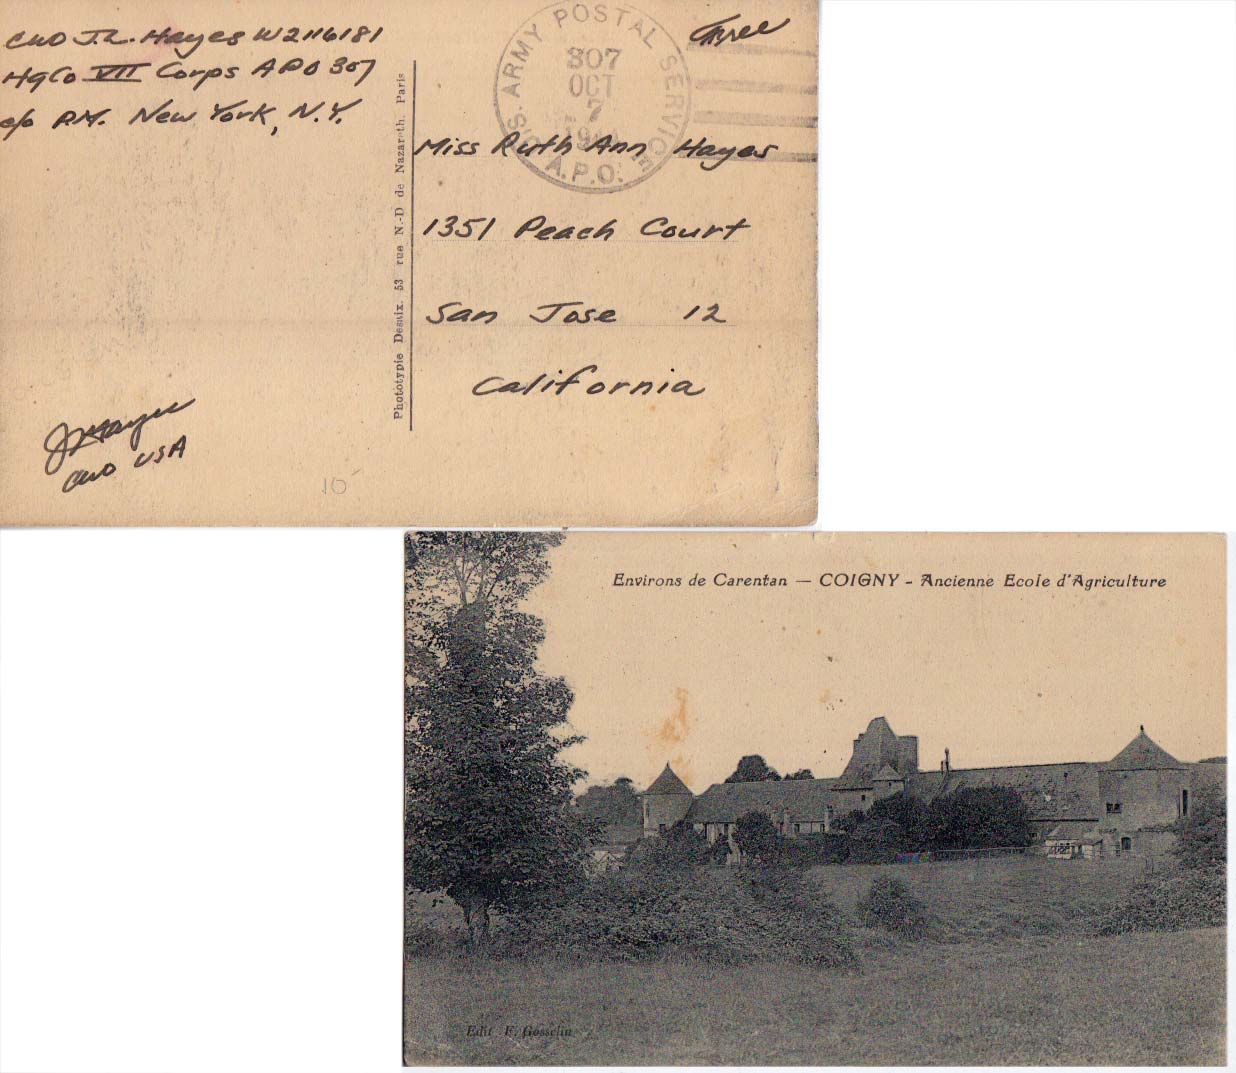 CWO J.L. Hayes W2116181
HqCo VII Corps APO 307
c/o P.M. New York, N.Y.
U.S. ARMY POSTAL SERVICE
307
OCT
7
A.P.O.
Free
Miss Ruth Ann Hayes
1351 Peach Court
San Jose 12
California
Phototypie Desaix. 53 rue N.-D de Nazareth. Paris
J Hayes
CWO USA
10
Environs de Carentan — COIGNY - Ancienne Ecole d'Agriculture
Edit F. Gosselin